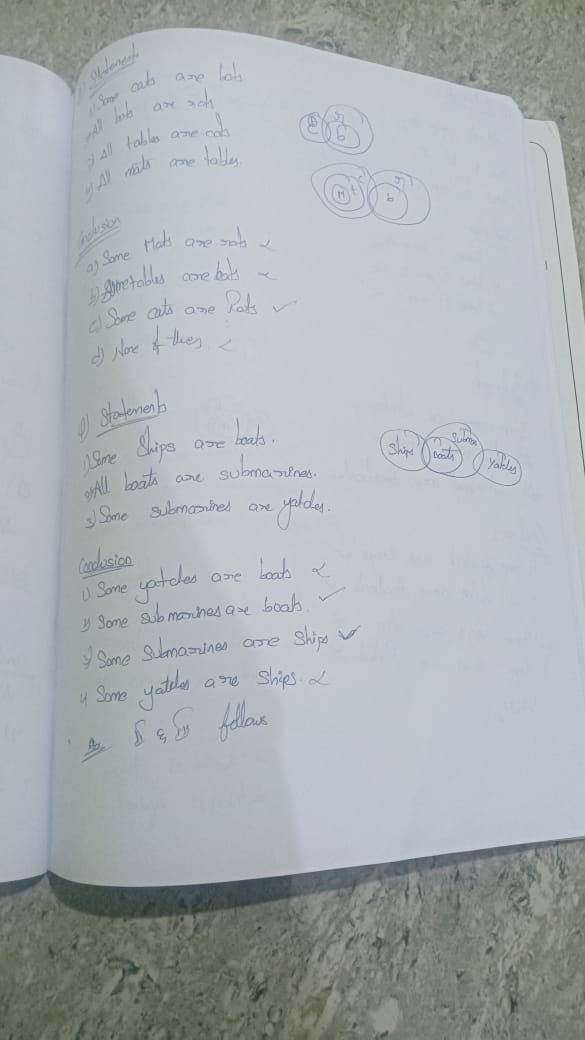 Statement
1) Some cats are bats
2) All bats are rats
3) All tables are cats
4) All mats are tables.
C r b
M t c b r
Conclusion
a) Some Mats are rats
b) Some tables are bats
c) Some cats are Rats ✓
d) None of thes
Statements
1) Some Ships are boats.
2) All boats are submarines.
3) Some submarines are yatches.
Ships boats Subma yatches
Conclusion
1) Some yatches are boats
2) Some submarines are boats ✓
3) Some Submarines are Ships ✓
4) Some yatches are Ships.
follows